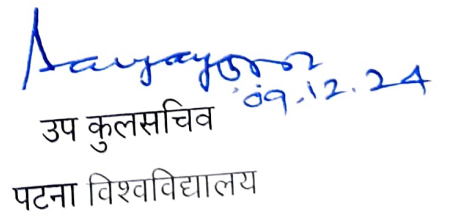 09.12.24
उप कुलसचिव
पटना विश्वविद्यालय